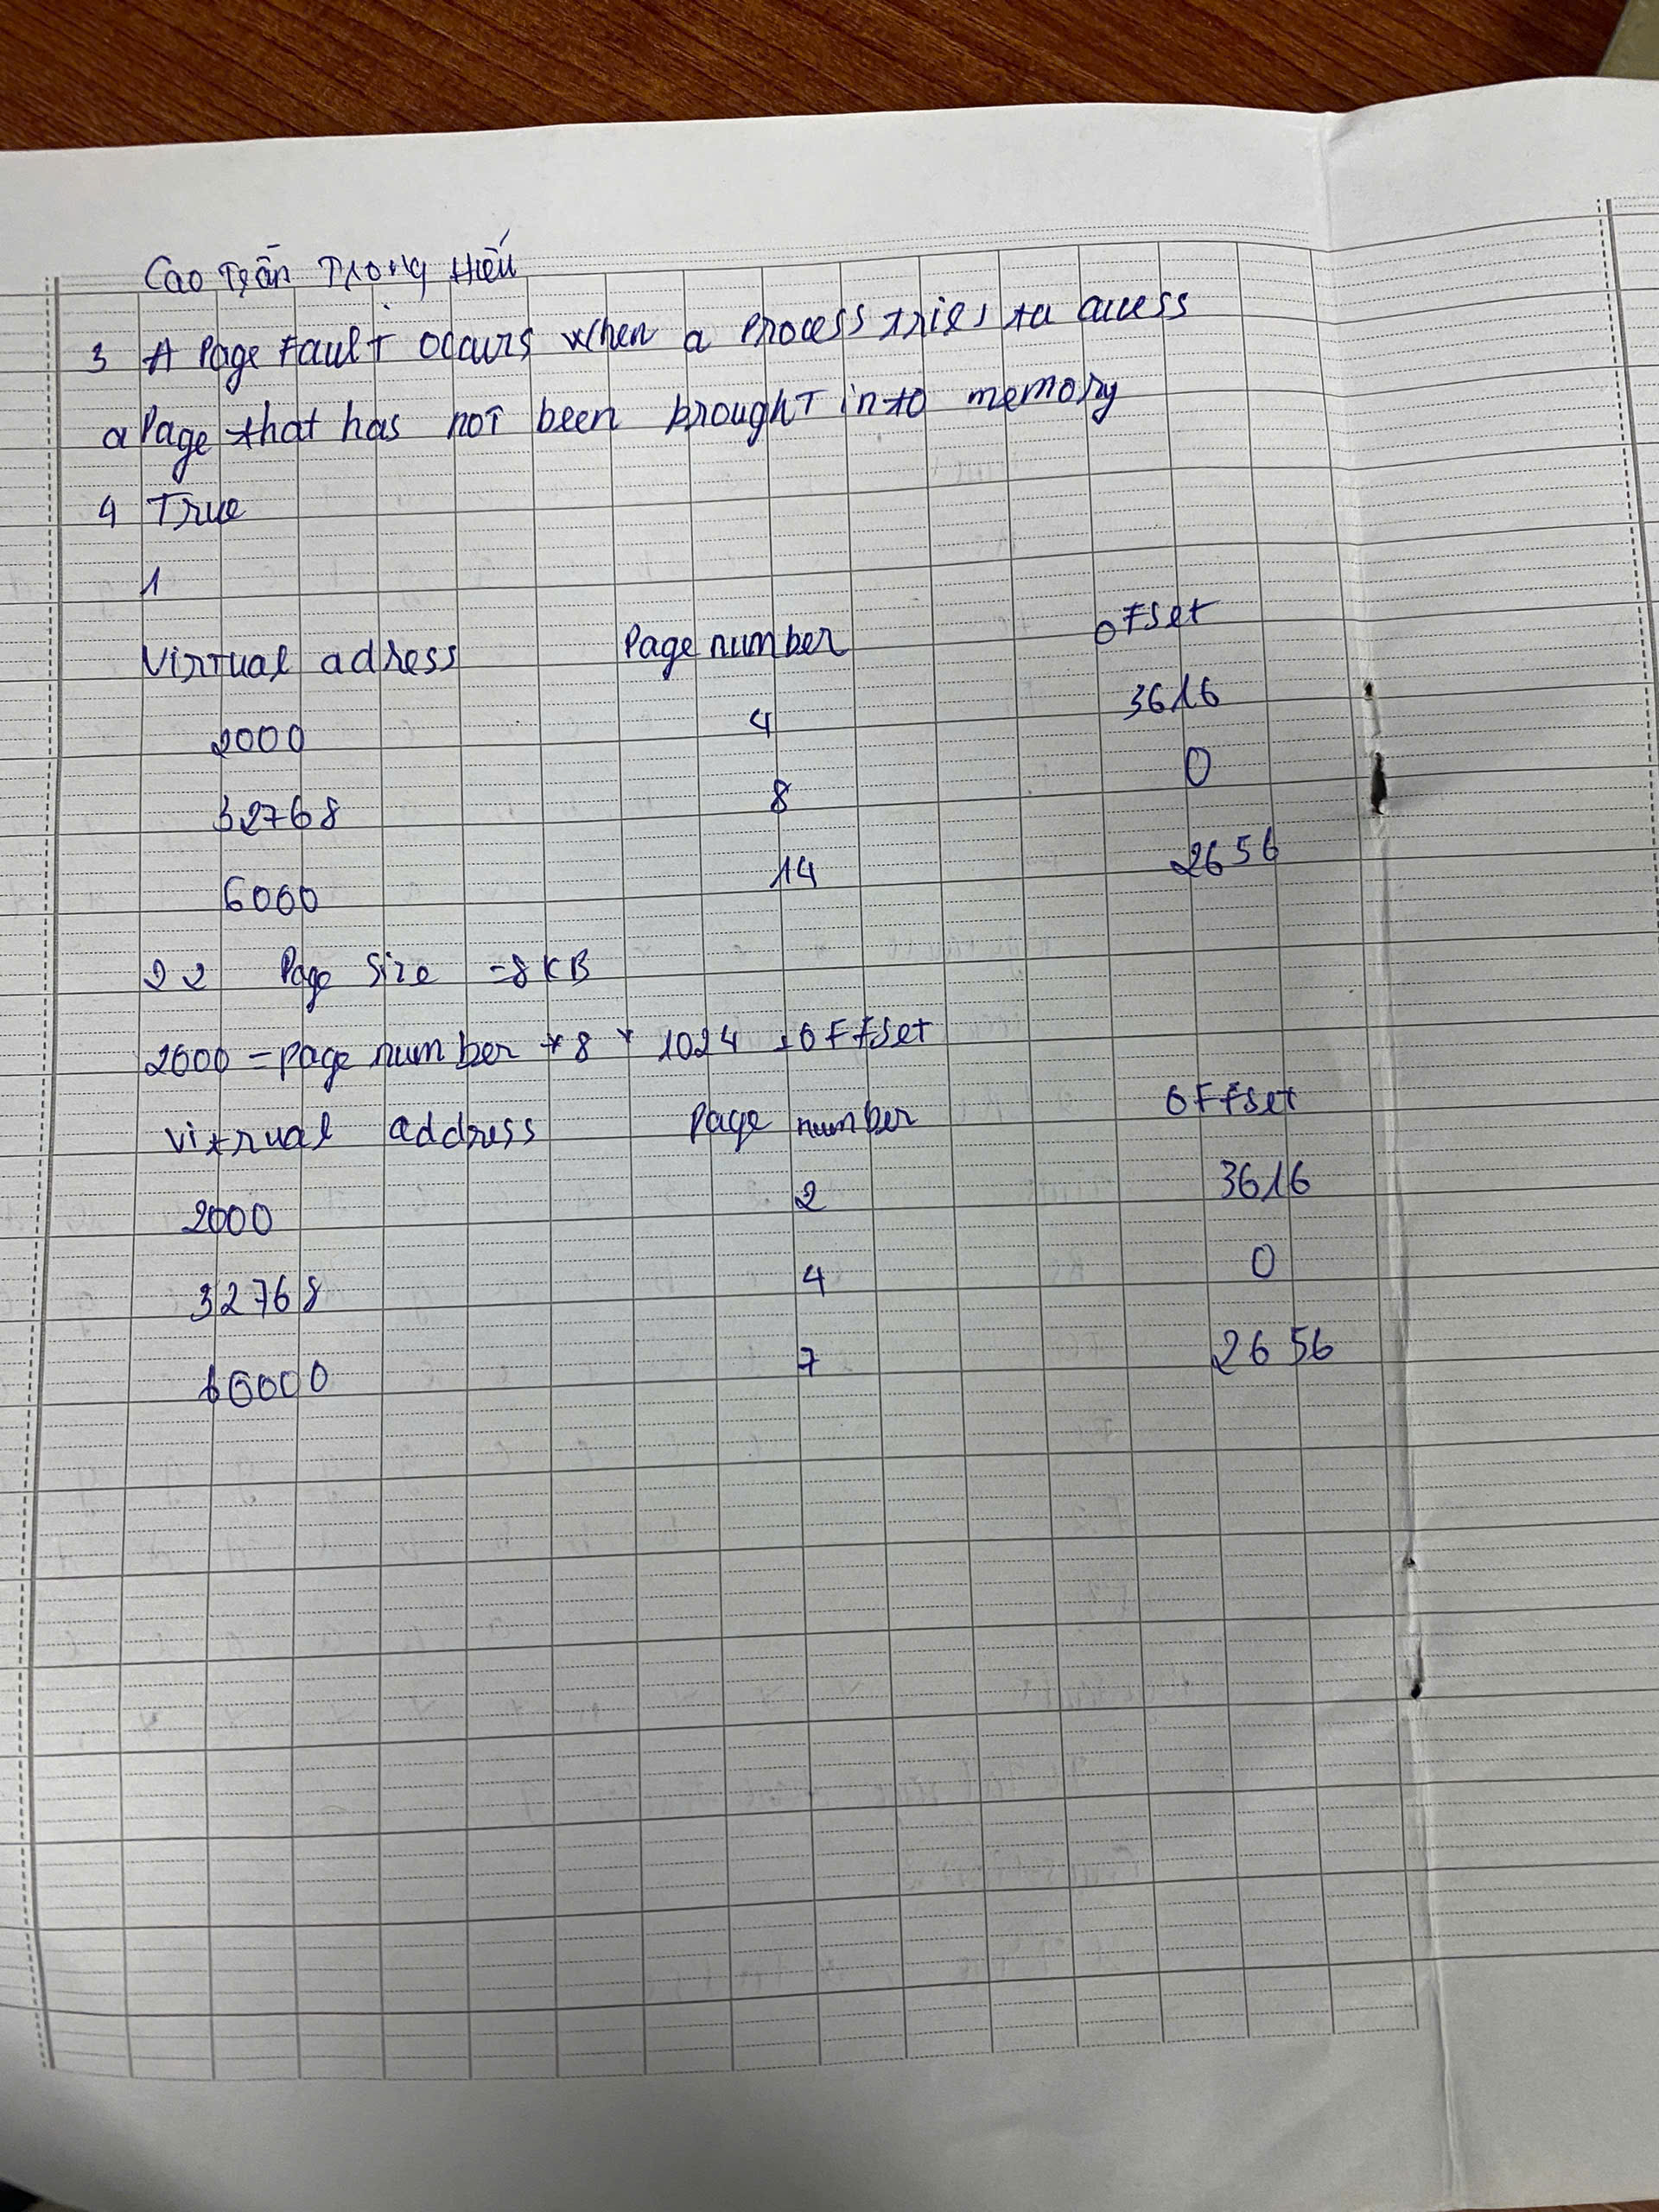 Cao Trần Trọng Hiếu
3 A Page Fault occurs when a Process tries to acess
a Page that has not been brought into memory
4 True
1
Virtual adress Page number offset
2000 4 3616
32768 8 0
6000 14 2656
22 Page size = 8KB
2000 = page number * 8 * 1024 + offset
virtual address Page number offset
2000 2 3616
32768 4 0
66000 7 2656